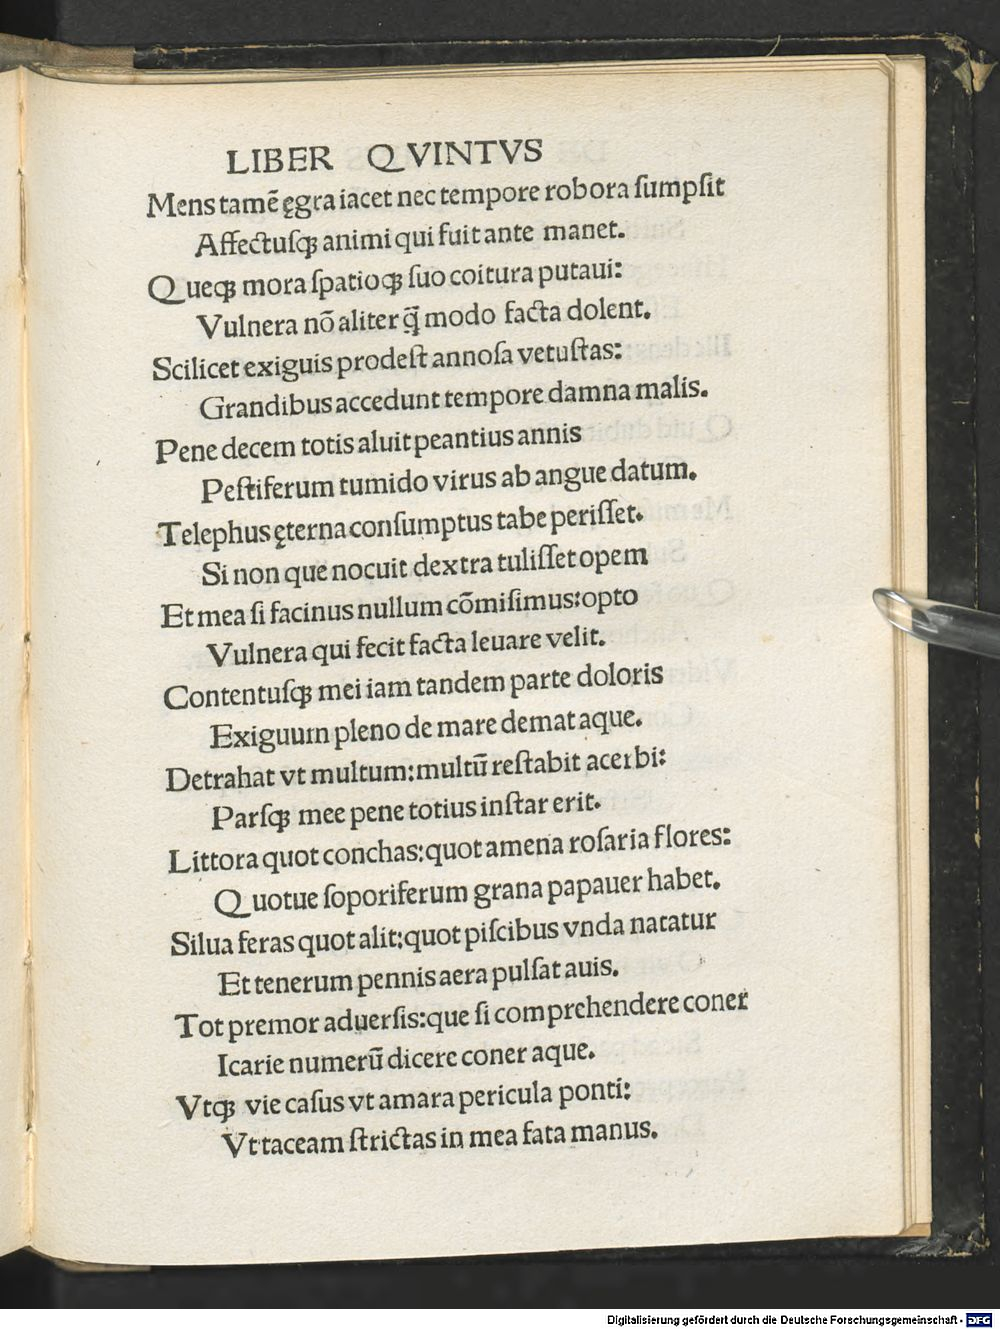 LIBER QVINTVS
Mens tamē ęgra iacet nec tempore robora ſumpſit
Affectuſqꝫ animi qui fuit ante manet.
Queqꝫ mora ſpatioqꝫ ſuo coitura putaui:
Vulnera nō aliter q̄ꝫ modo facta dolent.
Scilicet exiguis prodeſt annoſa vetuſtas:
Grandibus accedunt tempore damna malis.
Pene decem totis aluit peantius annis
Peſtiferum tumido virus ab angue datum.
Telephus ęterna conſumptus tabe periſſet.
Si non que nocuit dextra tuliſſet opem
Et mea ſi facinus nullum cōmiſimus:opto
Vulnera qui fecit facta leuare velit.
Contentuſqꝫ mei iam tandem parte doloris
Exiguum pleno de mare demat aque.
Detrahat vt multum:multū reſtabit acerbi:
Parſqꝫ mee pene totius inſtar erit.
Littora quot conchas:quot amena roſaria flores:
Quotue ſoporiferum grana papauer habet.
Silua feras quot alit:quot piſcibus vnda natatur
Et tenerum pennis aera pulſat auis.
Tot premor aduerſis:que ſi comprehendere coner
Icarie numerū dicere coner aque.
Vtqꝫ vie caſus vt amara pericula ponti:
Vt taceam ſtrictas in mea fata manus.
Digitalisierung gefördert durch die Deutsche Forschungsgemeinschaft - DFG